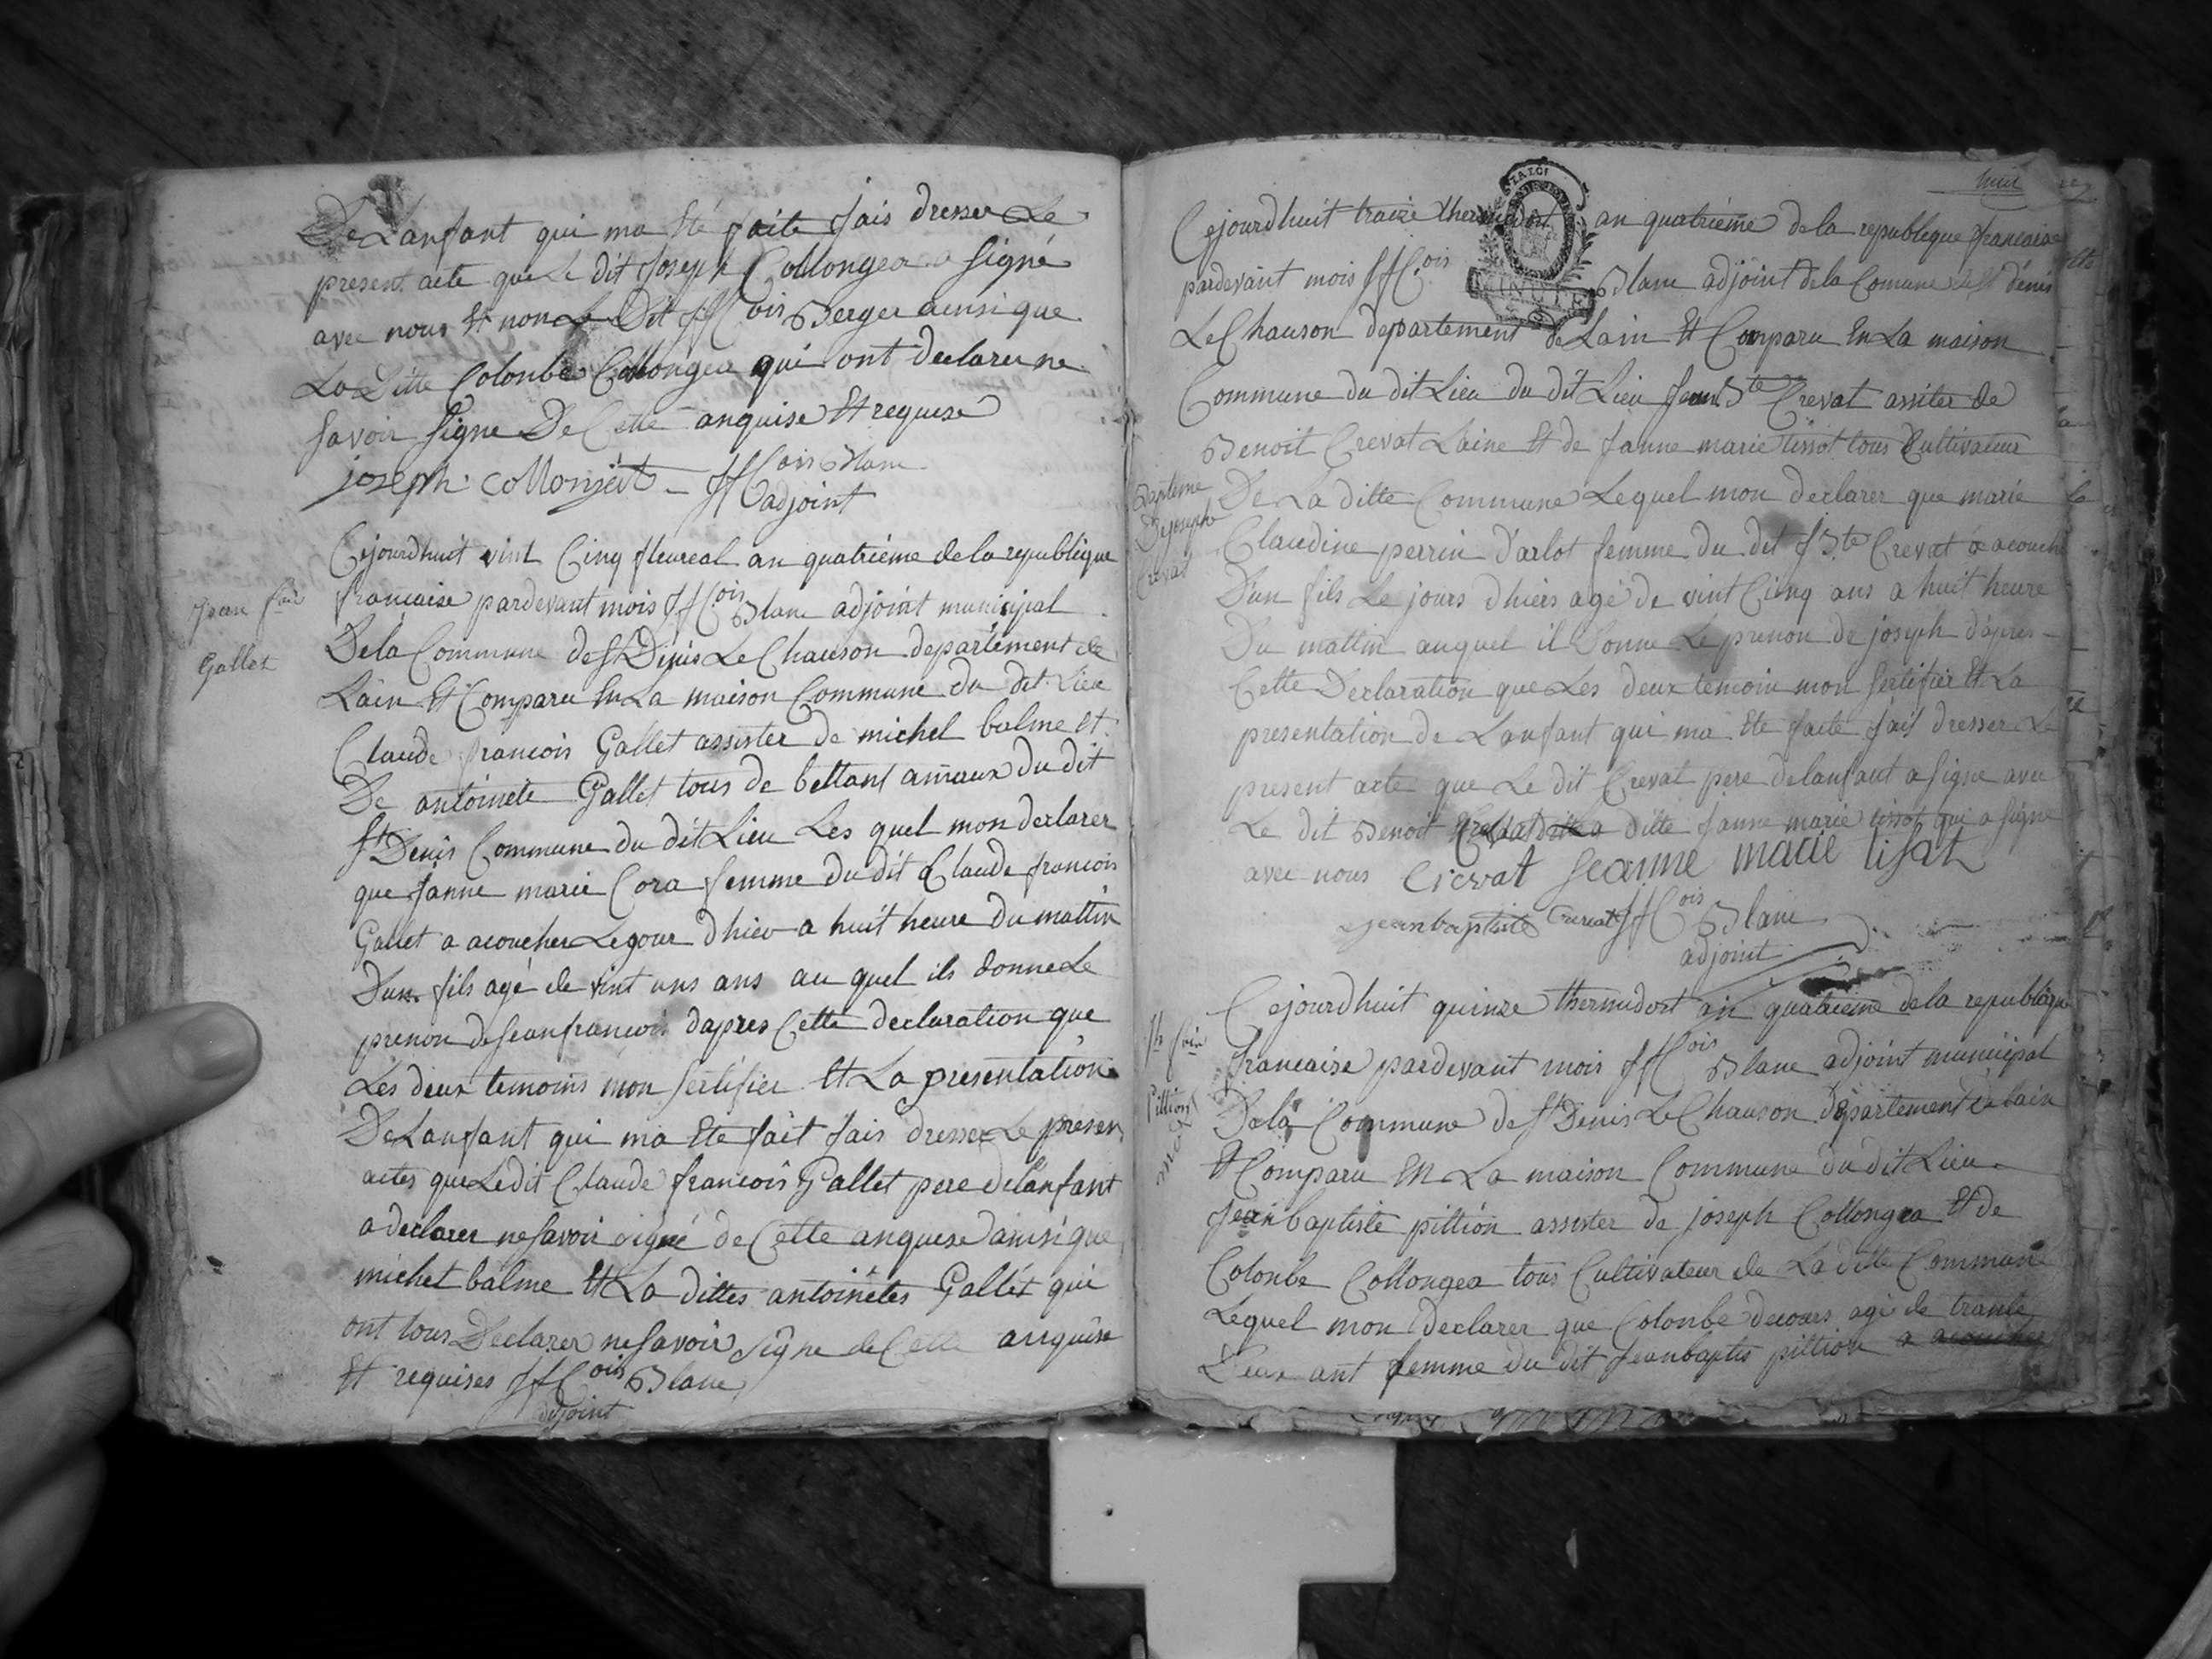 De Lanfant qui ma Eté faite fais dresser Le
present acte que Le dit Joseph Collongea a signé
avec nous Et non Le Dit ffCois Berger ainsi que
La Ditte Colonbe Collongea qui ont declarer ne
savoir signe De Cette anquise Et requise
joseph collonjat ffCois Blanc
adjoint
Cejourdhuit vint Cinq fleureal an quatrième de la republique
francaise pardevant mois ffCois Blanc adjoint municipal
De la Commune de St Denis Le Chauson departement de
Lain Et Comparu En La maison Commune du dit Lieu
Claude francois Gallet assister de michel balme Et
De antoinete Gallet tous de bettant du dit
St Denis Commune du dit Lieu Les quel mon declarer
que janne marie Cora femme du dit Claude francois
Gallet a acoucher Le jour dhier a huit heure du mattin
Dun fils agé de vint uns ans au quel ils donne Le
prenon de jean francois dapres Cette declaration que
Les deux temoins mon sertifier Et La presentation
De Lanfant qui ma Ete fait fais dresser Le presen
actes que Ledit Claude francois Gallet pere delanfant
a declarer ne savoir signé de Cette anquise ainsi que
michel balme Et La dittes antoinetes Gallet qui
ont tous Declarer ne savoir signe de Cette anquise
Et requises ffCois Blanc
adjoint
Jean fois
Gallet
huit
Cejourdhuit traize thermidort an quatrieme de la republique francaise
LA LOI
pardevant mois ffCois Blanc adjoint de la Comune de St denis
Le Chauson departement de Lain Et Comparu En La maison
Commune du dit Lieu du dit Lieu Jean Bte Crevat assiter de
Benoit Crevat Laine Et de janne marie tissot tous Cultivateur
De La ditte Commune Lequel mon declarer que marie
Claudine perrin d'arlot femme du dit J Bte Crevat a acouche
D'un fils Le jours dhiers agé de vint Cinq ans a huit heure
Du mattin auquel il Donne Le prenon de joseph dapres
Cette Declaration que Les deux temoin mon sertifier Et La
presentation de Lanfant qui ma Ete faite fais dresser Le
present acte que Le dit Crevat pere delanfant a signe avec
Le dit Benoit ditte janne marie tissot qui a signe
avec nous Crevat jeanne marie tisat
jean baptiste Crevat ffCois Blanc
adjoint
Bapteme
De joseph
Crevat
Cejourdhuit quinze thermidort an quatrieme de la republique
francaise pardevant mois ffCois Blanc adjoint municipal
De la Commune de St Denis Le Chauson departement de lain
Et Comparu En La maison Commune du dit Lieu
Jean baptiste pittion assister de joseph Collongea Et de
Colonbe Collongea tous Cultivateur de La ditte Commune
Lequel mon declarer que Colonbe decours agé de trante
Deux ant femme du dit Jean baptis pittion a acoucher
pittion